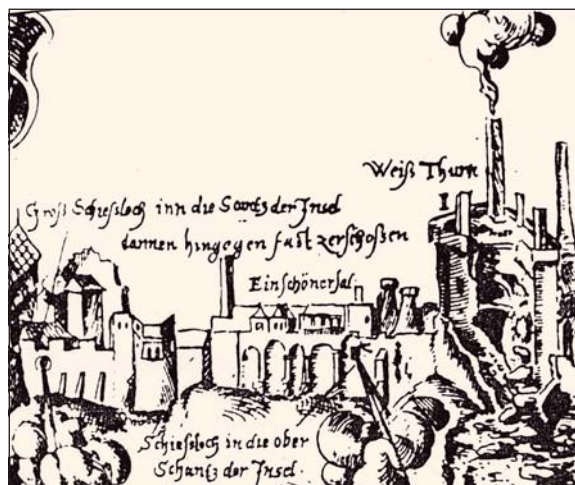 Weiß Thurn
Groß Schiessloch inn die Schantz der Insel
dannen hingegen fast zerschoßen
Ein schöner sal.
Schiessloch in die ober
Schantz der Insel.